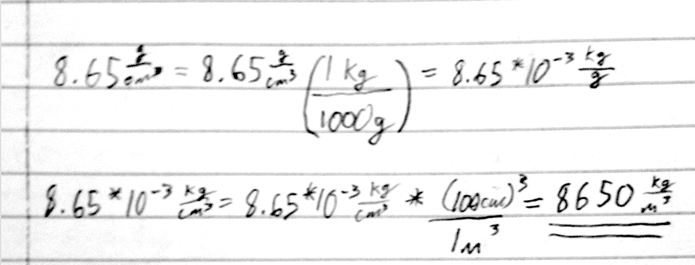 8.65 g/cm³ = 8.65 g/cm³ (1 kg/1000g) = 8.65 * 10⁻³ kg/g
8.65 * 10⁻³ kg/cm³ = 8.65 * 10⁻³ kg/cm³ * (100cm)³/1m³ = 8650 kg/m³